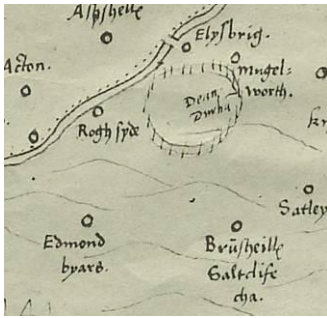 Aspshelle
Elysbrig.
Acton.
Mugel=
worth.
Dean
Rogh syde
Satley
Edmond
byars.
Brūsheille
Saltclife
cha.